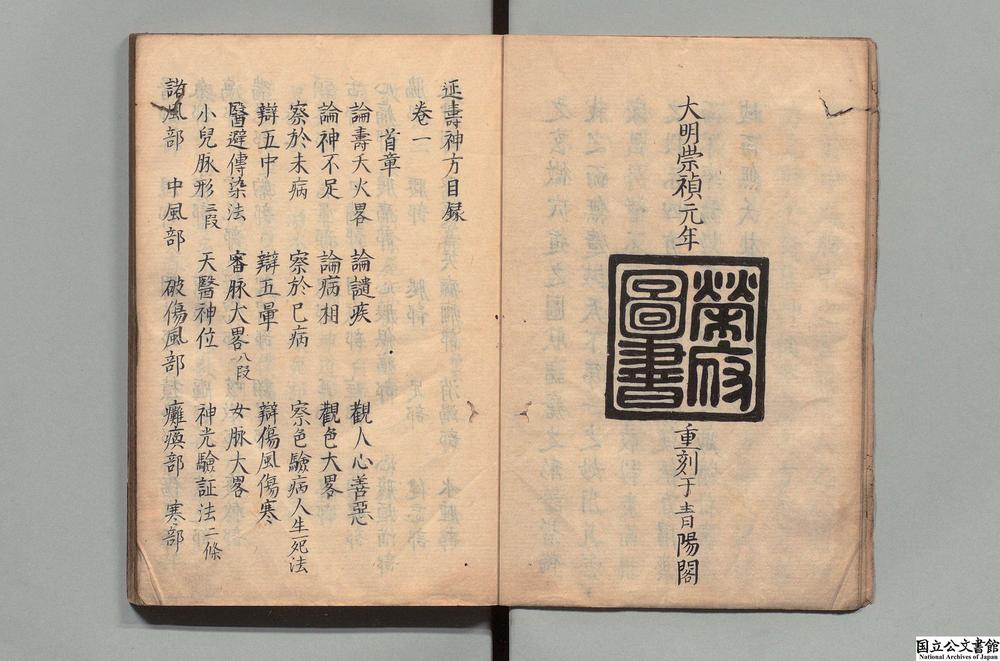 大明崇禎元年
榮府
圖書
重刻于青陽閣
延壽神方目録
卷一
首章
論壽夭火畧 論譴疾 觀人心善惡
論神不足 論病相 觀色大畧
察於未病 察於已病 察色驗病人生死法
辯五中 辯五暈 辯傷風傷寒
醫避傳染法 審脉大畧八段 女脉大畧
小兒脉形二段 天醫神位 神光驗証法二條
諸風部 中風部 破傷風部 癱瘓部 寒部
国立公文書館
National Archives of Japan